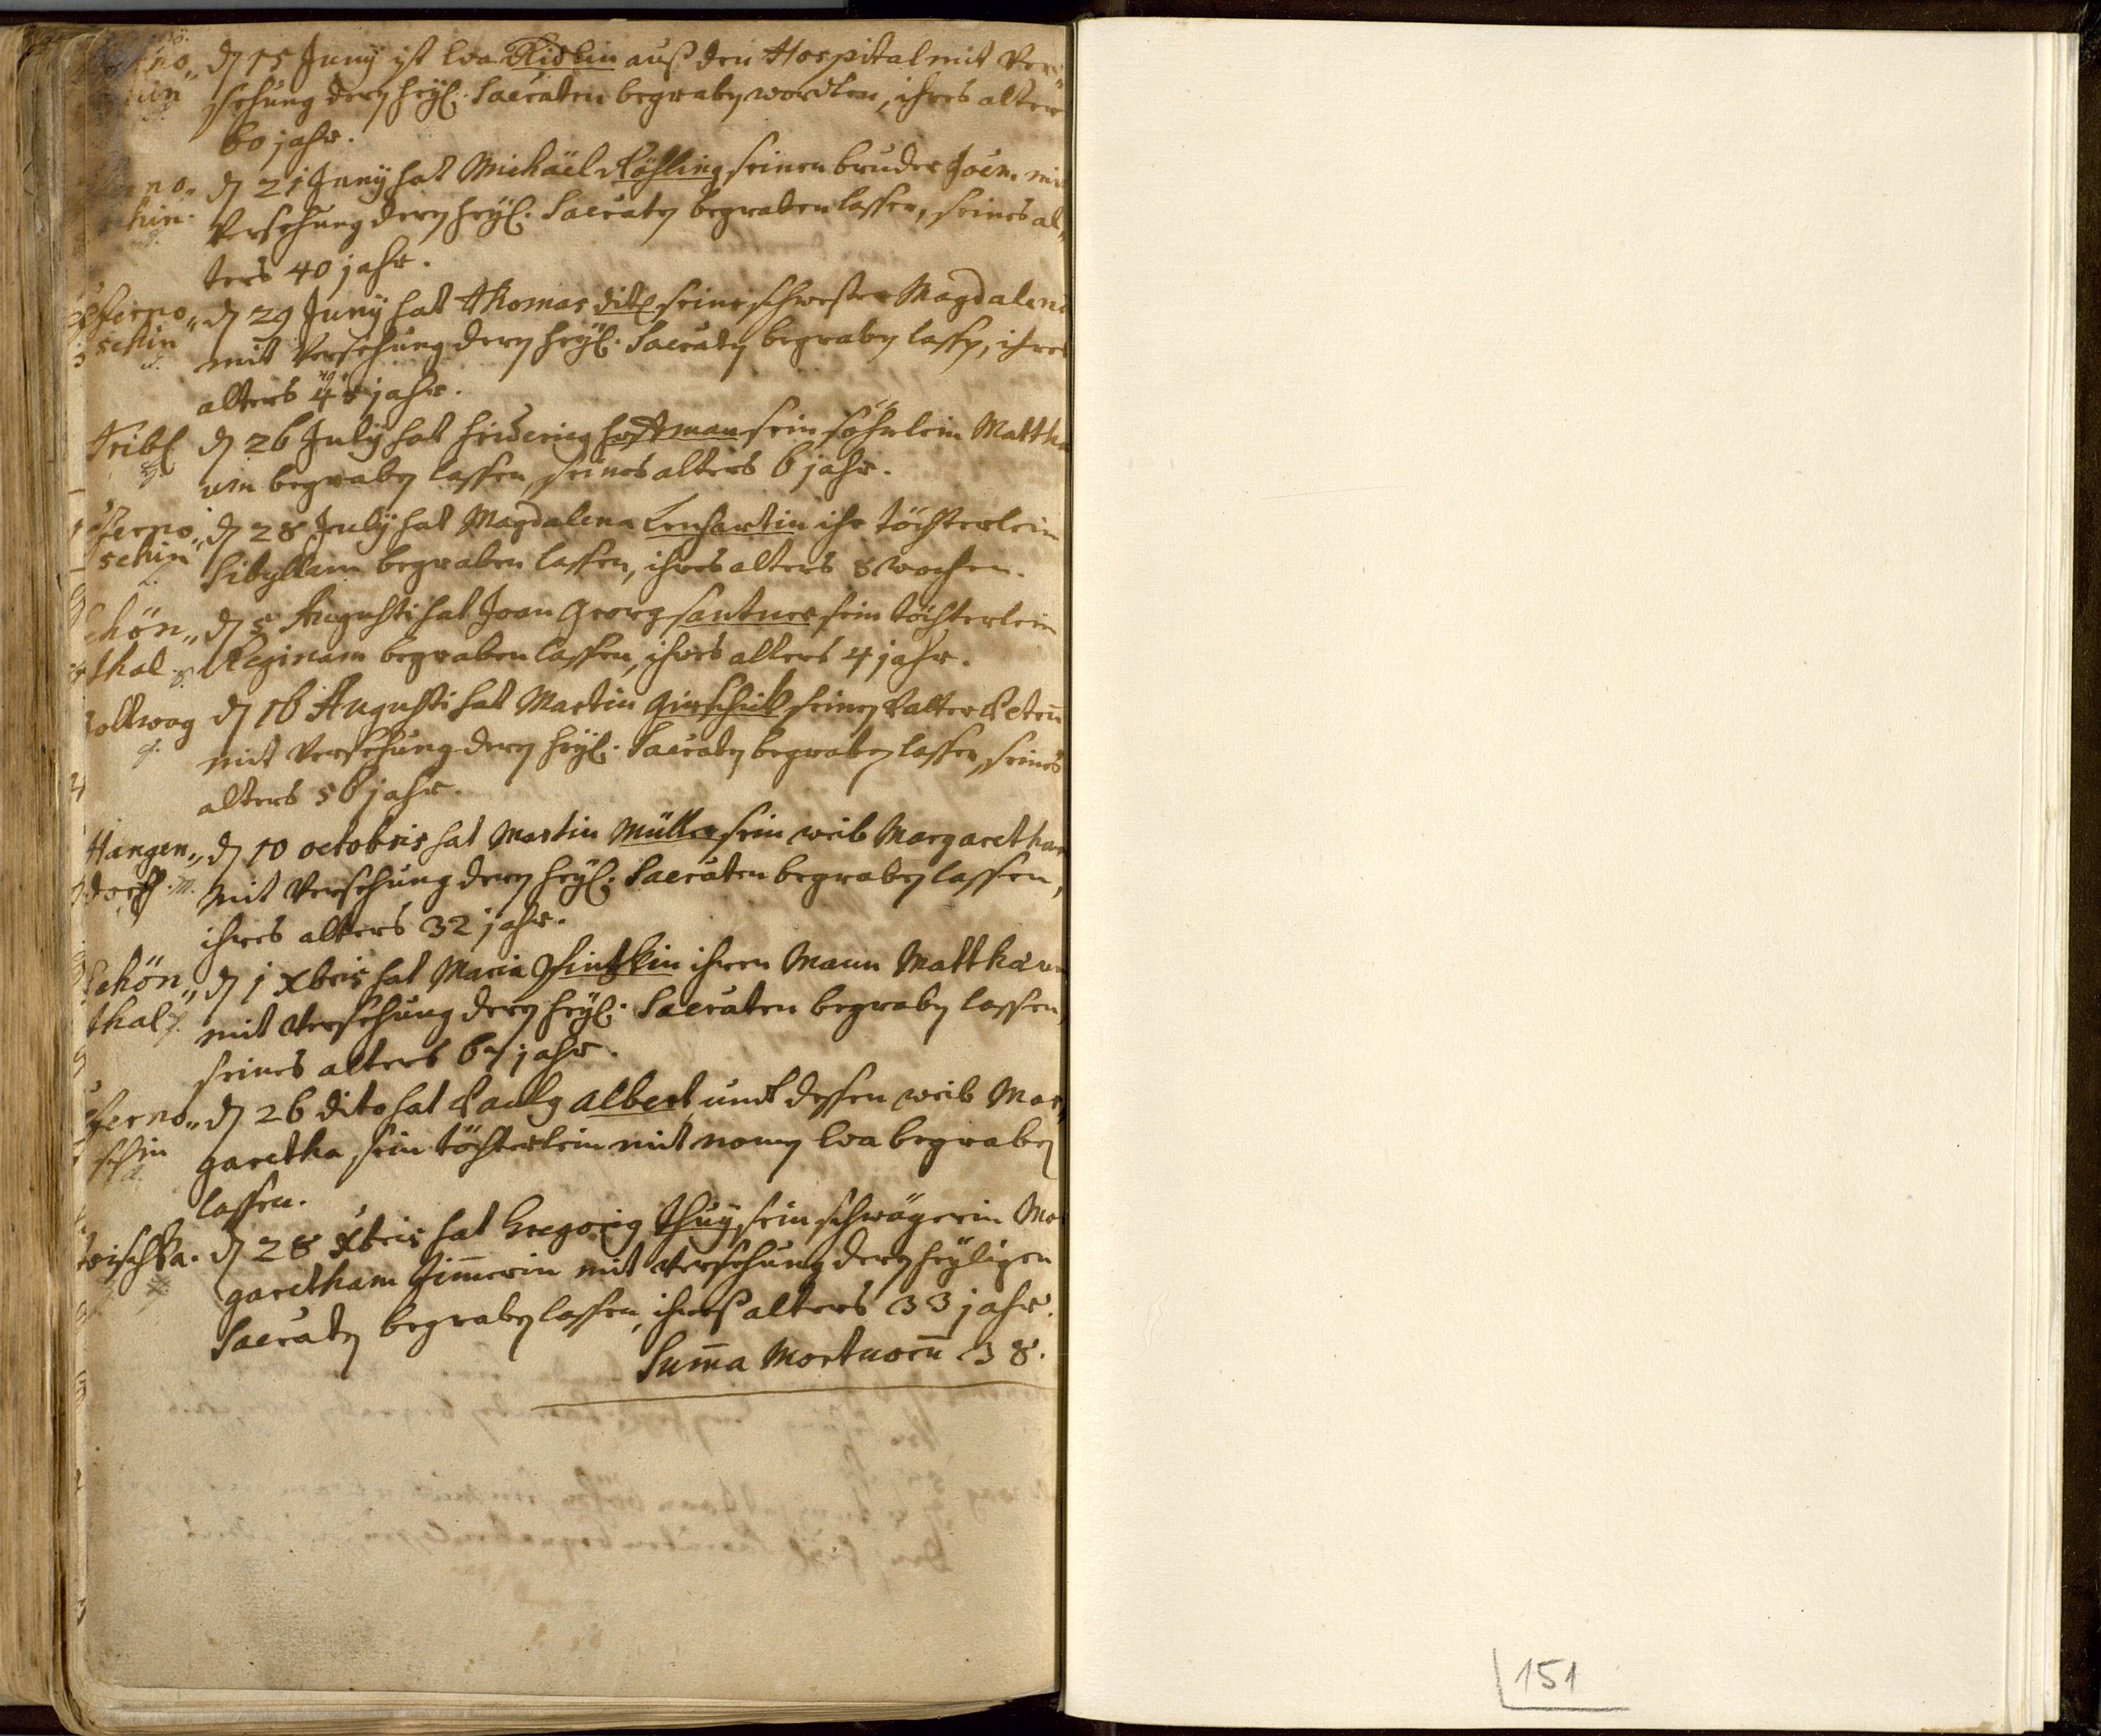 dẽ 15 Junÿ ist Eva Ridlin auß den Hospital mit Ver„
sehung deren heÿl: Sacraten begraben wordten, ihres alters
60 jahr.
dẽ 21 Junÿ hat Michäel Röhling seinen bruder Joem. mit
schin. Versehung deren heÿl: Sacraten begraben lassen, seines al„
ters 40 jahr.
Perno„ dẽ 29 Junÿ hat Thomas seine schwester Magdalena
schin mit Versehung deren heÿl: Sacraten begraben lassen, ihres
alters jahr.
Tribl dẽ 26 Julÿ hat Friderich Hoffman sein söhnlein Matthæ
um begraben lassen, seines alters 6 jahr.
Perno„ dẽ 28 Julÿ hat Magdalena Lenhartin ihr töchterlein
schin Sibyllam begraben lassen, ihres alters 8 wochen.
Schön„ dẽ 5 Augusti hat Joan Georg Santner sein töchterlein
thal. s. Reginam begraben lassen, ihres alters 4 jahr.
dẽ 16 Augusti hat Martin seinen Vatter Petrū
mit Versehung deren heÿl: Sacraten begraben lassen, seines
alters 56 jahr.
Hangen„ dẽ 10 octobris hat Martin Müller sein weib Margaretham
dorff. m. mit Versehung deren heÿl: Sacraten begraben lassen,
ihres alters 32 jahr.
Schön„ dẽ 1 Xbris hat Maria ihren Mann Matthæum
thal mit Versehung deren heÿl: Sacraten begraben lassen,
seines alters 67 jahr.
Perno„ dẽ 26 dito hat Paulg Albert undt dessen weib Mar„
schin garetha, sein töchterlein mit namen Eva begraben
lassen.
dẽ 28 Xbris hat Gregorig Thuÿ sein schwägerin Mar
garetham Zim̃erin mit Versehung deren heÿligen
Sacraten begraben lassen, ihres alters 33 jahr.
Sum̃a Mortuorū 38.
151